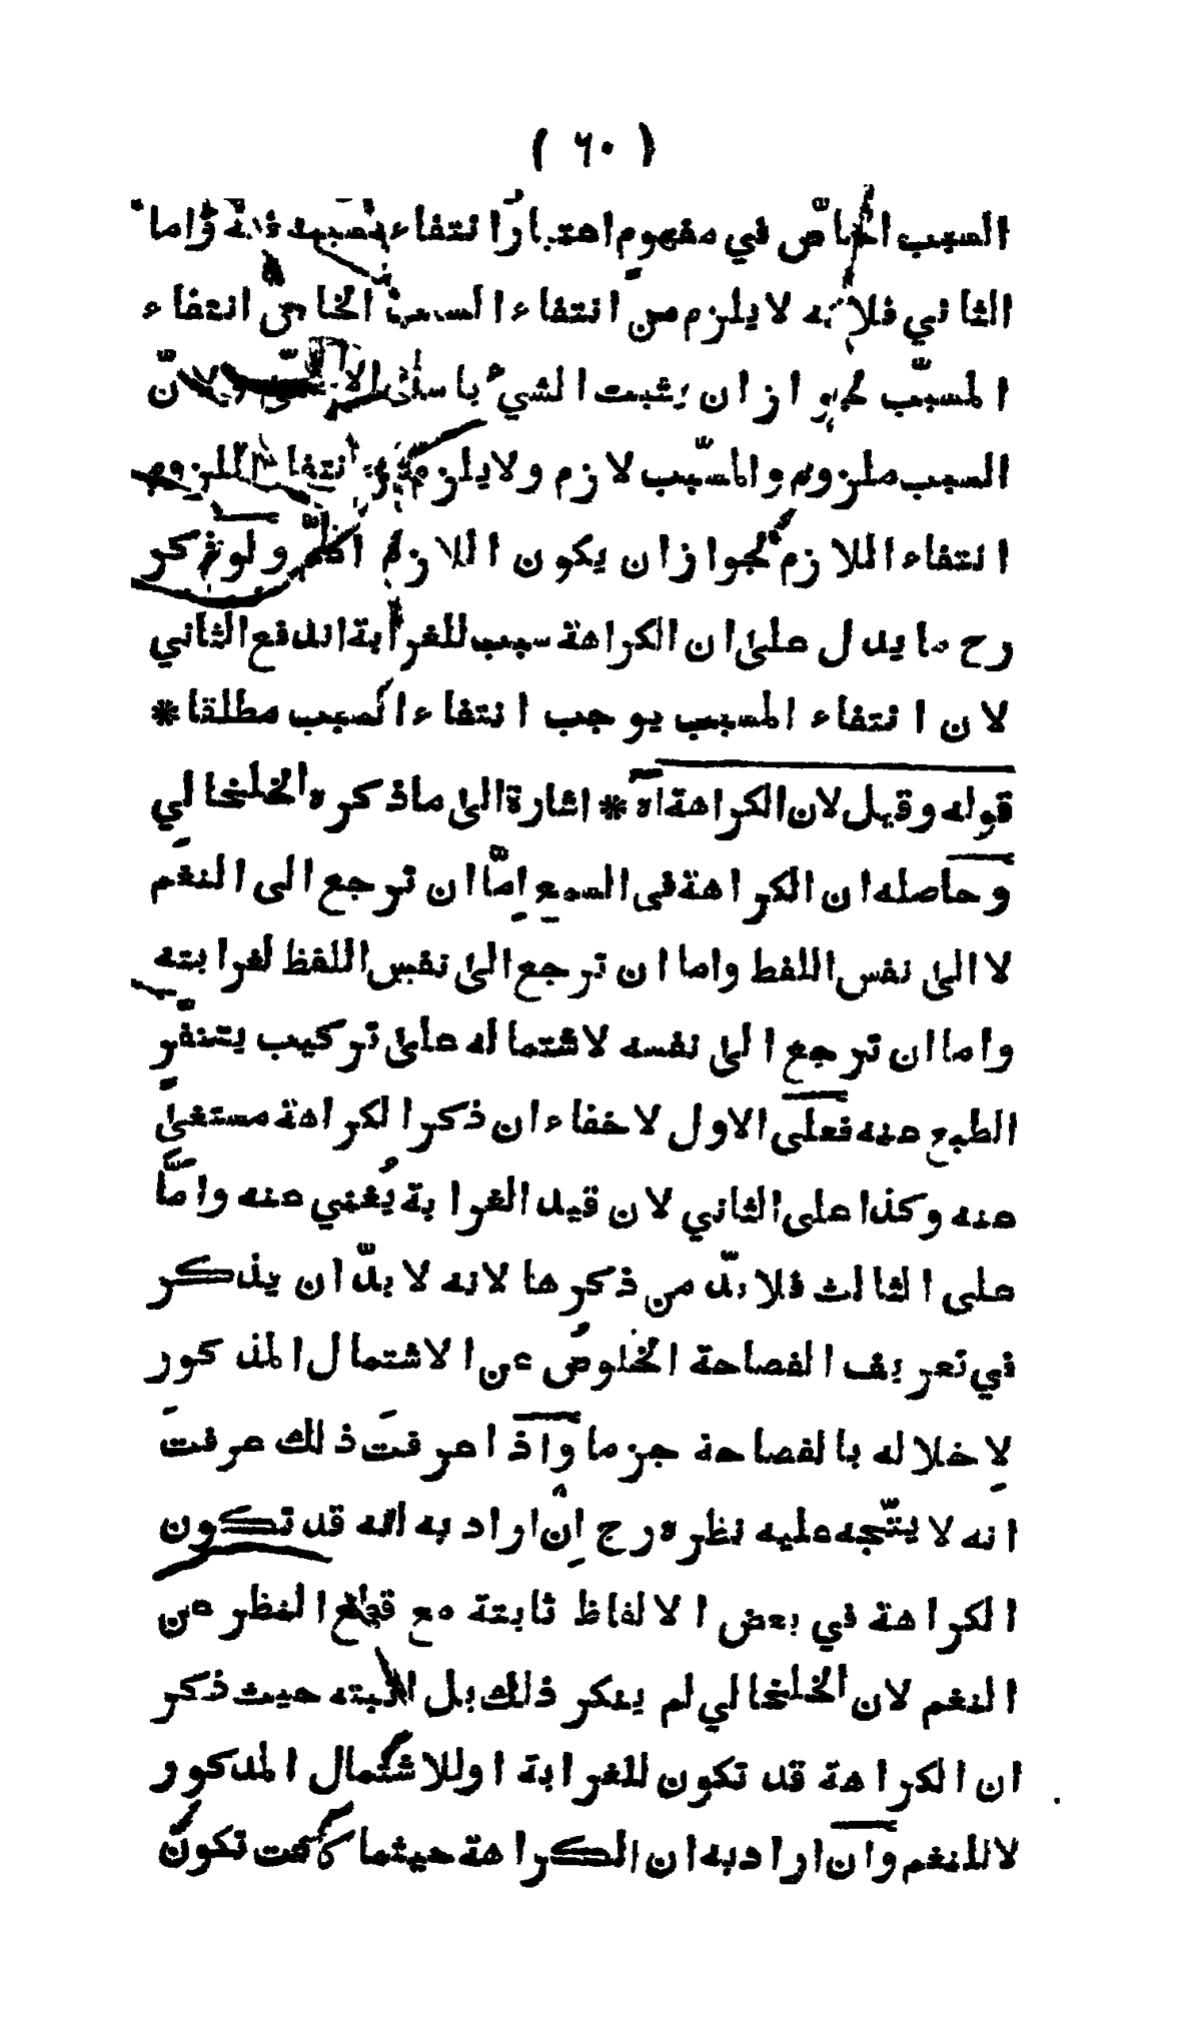 ( ٦٠ )
السبب الخاصّ في مفهوم اعتبار انتفاء واما
الثاني فلانه لا يلزم من انتفاء السبب الخاص انتفاء
المسبّب لجواز ان يثبت الشيء باسباب ولانّ
السبب ملزوم والمسبّب لازم ولا يلزم من انتفاء الملزوم
انتفاء اللازم لجواز ان يكون اللازم اعمّ ولو ذكر
رح ما يدل على ان الكراهة سبب للغرابة اندفع الثاني
لان انتفاء المسبب يوجب انتفاء السبب مطلقا *
قوله وقيل لان الكراهة اه * اشارة الى ما ذكره الخلخالي
وحاصله ان الكراهة في السمع امّا ان ترجع الى النغم
لا الى نفس اللفظ واما ان ترجع الى نفس اللفظ لغرابته
واما ان ترجع الى نفسه لاشتماله على تركيب يتنفّر
الطبع عنه فعلى الاول لا خفاء ان ذكر الكراهة مستغنى
عنه وكذا على الثاني لان قيد الغرابة يُغني عنه وامّا
على الثالث فلا بدّ من ذكرها لانه لا بدّ ان يذكر
في تعريف الفصاحة الخلوصُ عن الاشتمال المذكور
لِاخلاله بالفصاحة جزما واذا عرفتَ ذلك عرفتَ
انه لا يتّجه عليه نظره رح اِن اراد به انه قد تكون
الكراهة في بعض الالفاظ ثابتة مع قطع النظر عن
النغم لان الخلخالي لم ينكر ذلك بل اثبته حيث ذكر
ان الكراهة قد تكون للغرابة او للاشتمال المذكور
لا للنغم وان اراد به ان الكراهة حيثما كانت تكون